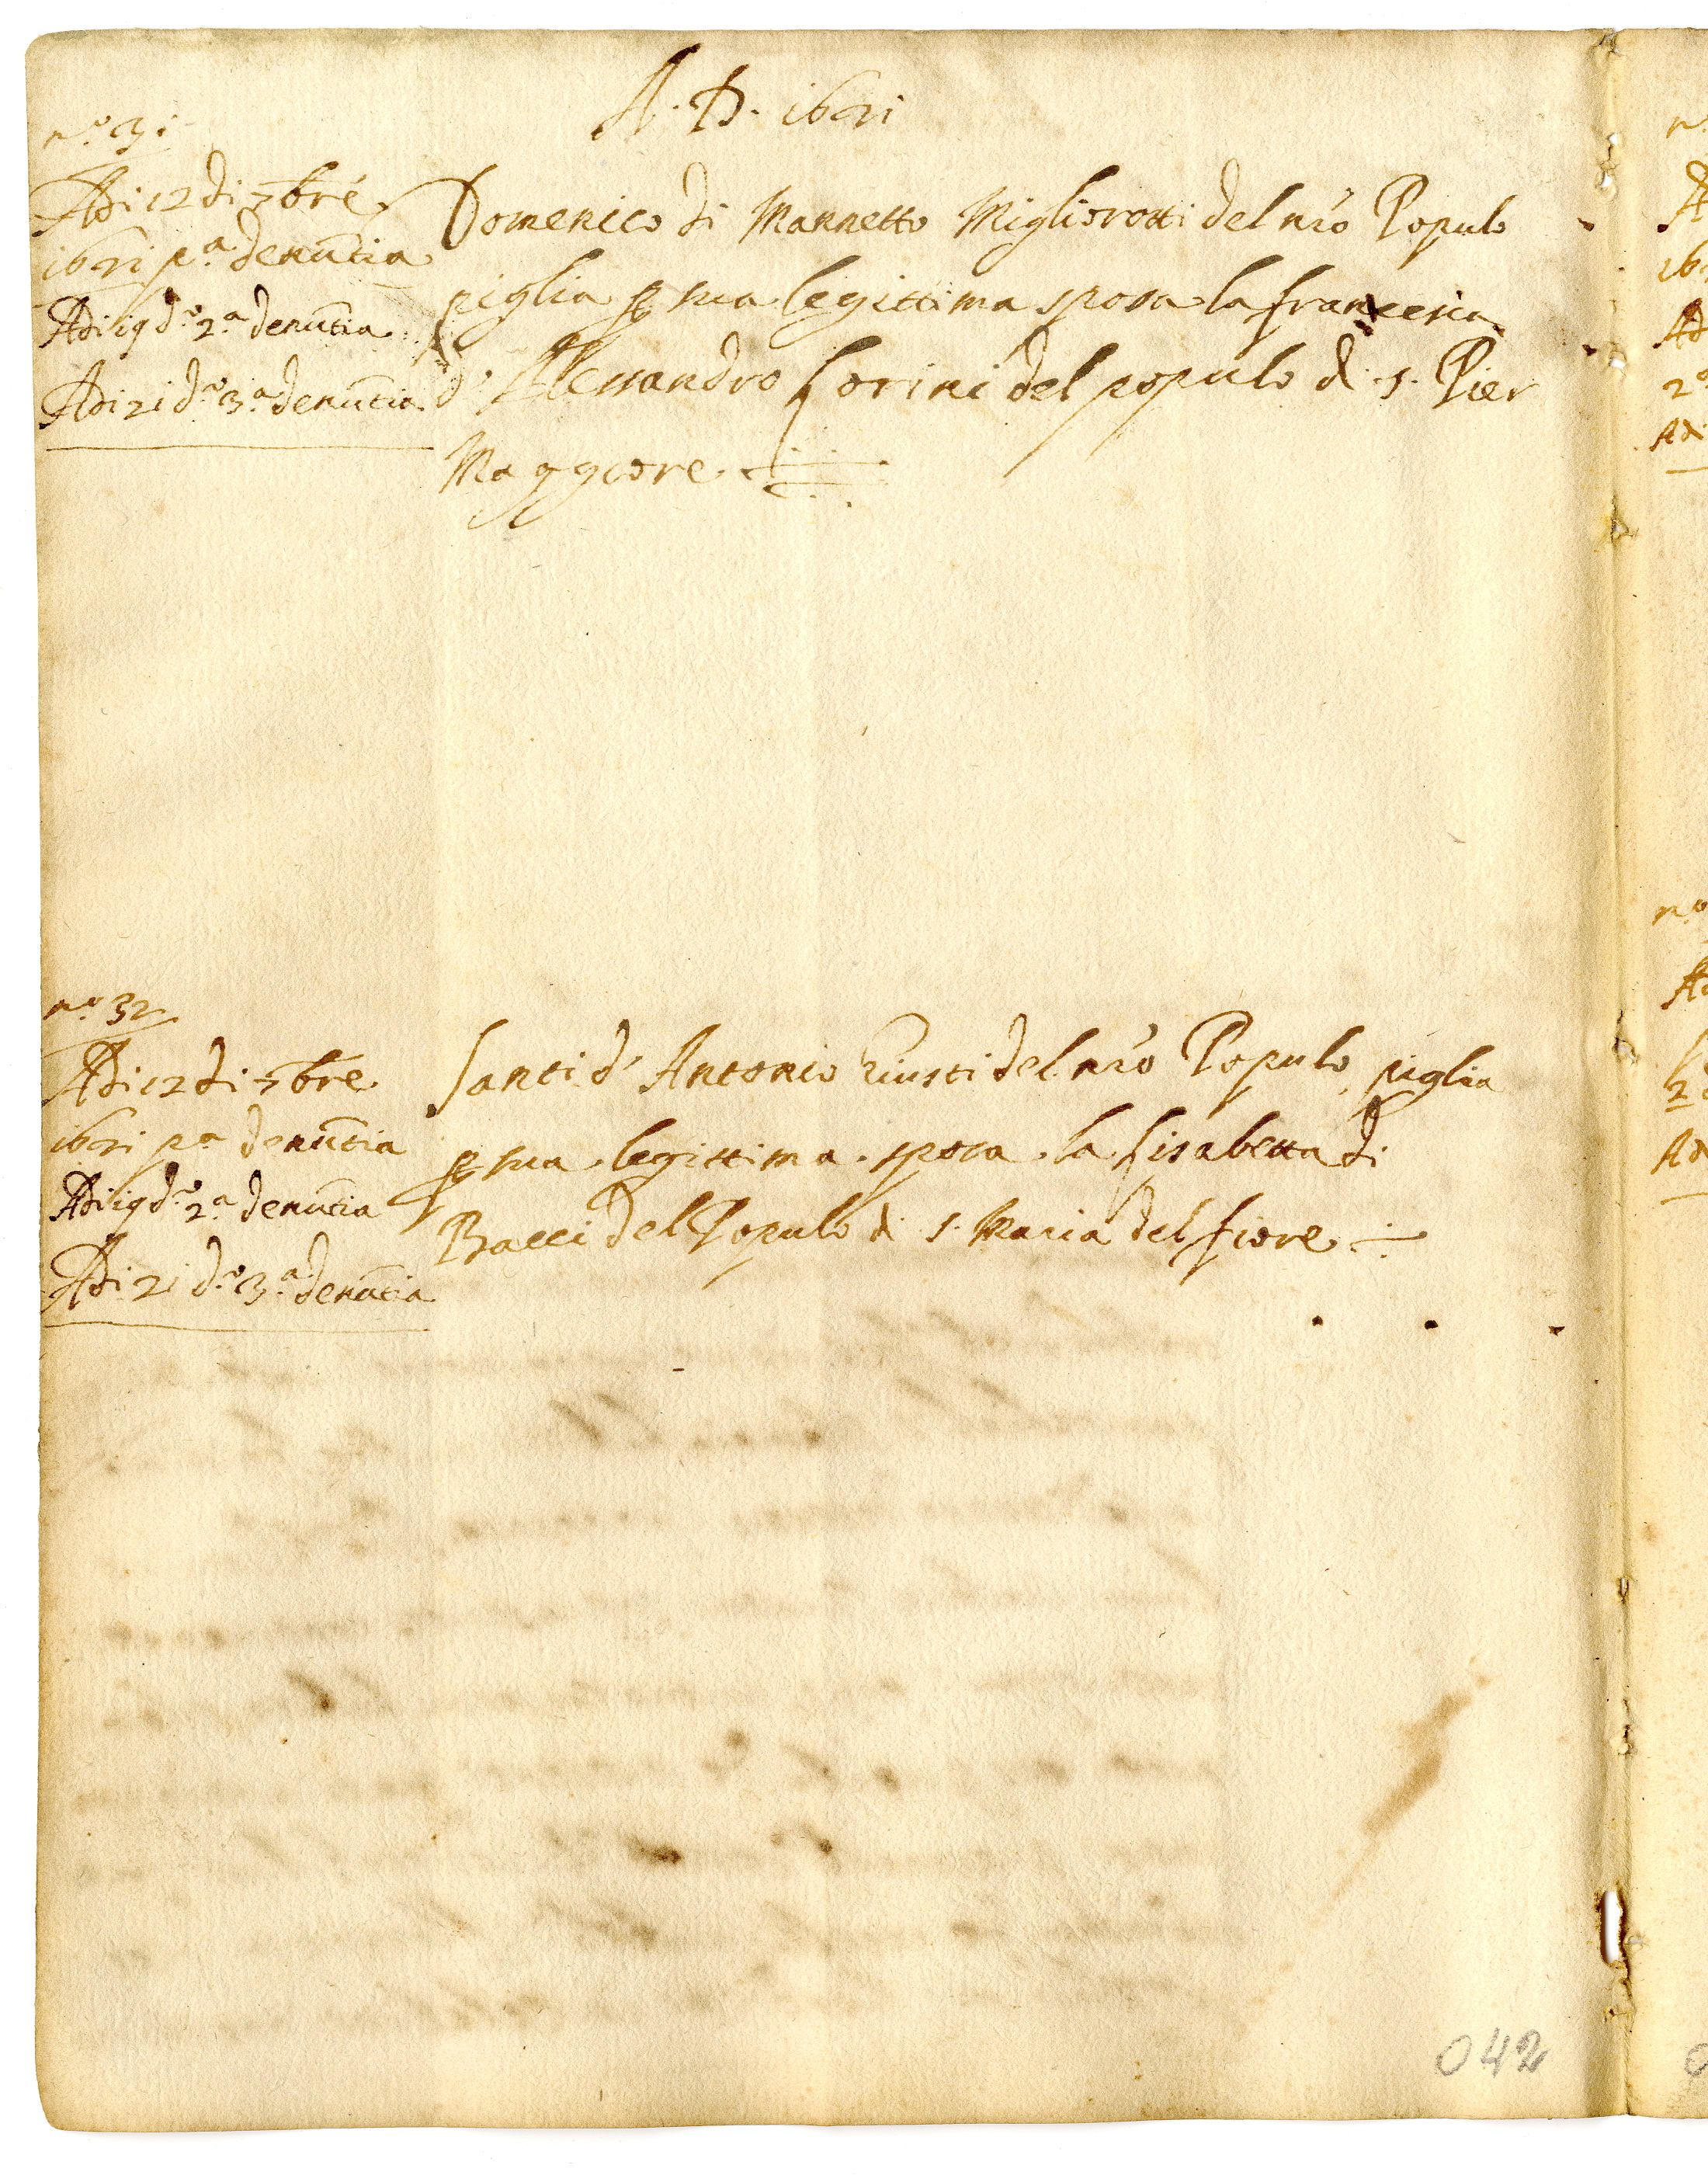 A. D. 1621
nº 31
Adi 12 di 7bre
1621 pª denũtia
Adi 19 dº 2ª denũtia
Adi 21 dº 3ª denũtia
Domenico di Mannetto Migliorotti del nr̃o Populo
piglia p sua legittima sposa la francesca
d' Alessandro Lorini del populo di S. Pier
Maggiore
nº 32
Adi 12 di 7bre
1621 pª denũtia
Adi 19 dº 2ª denũtia
Adi 21 dº 3ª denũtia
Santi d' Antonio Giusti del nr̃o Populo piglia
p sua legittima sposa la Lisabetta di
Bacci del Populo di S. Maria del fiore
042